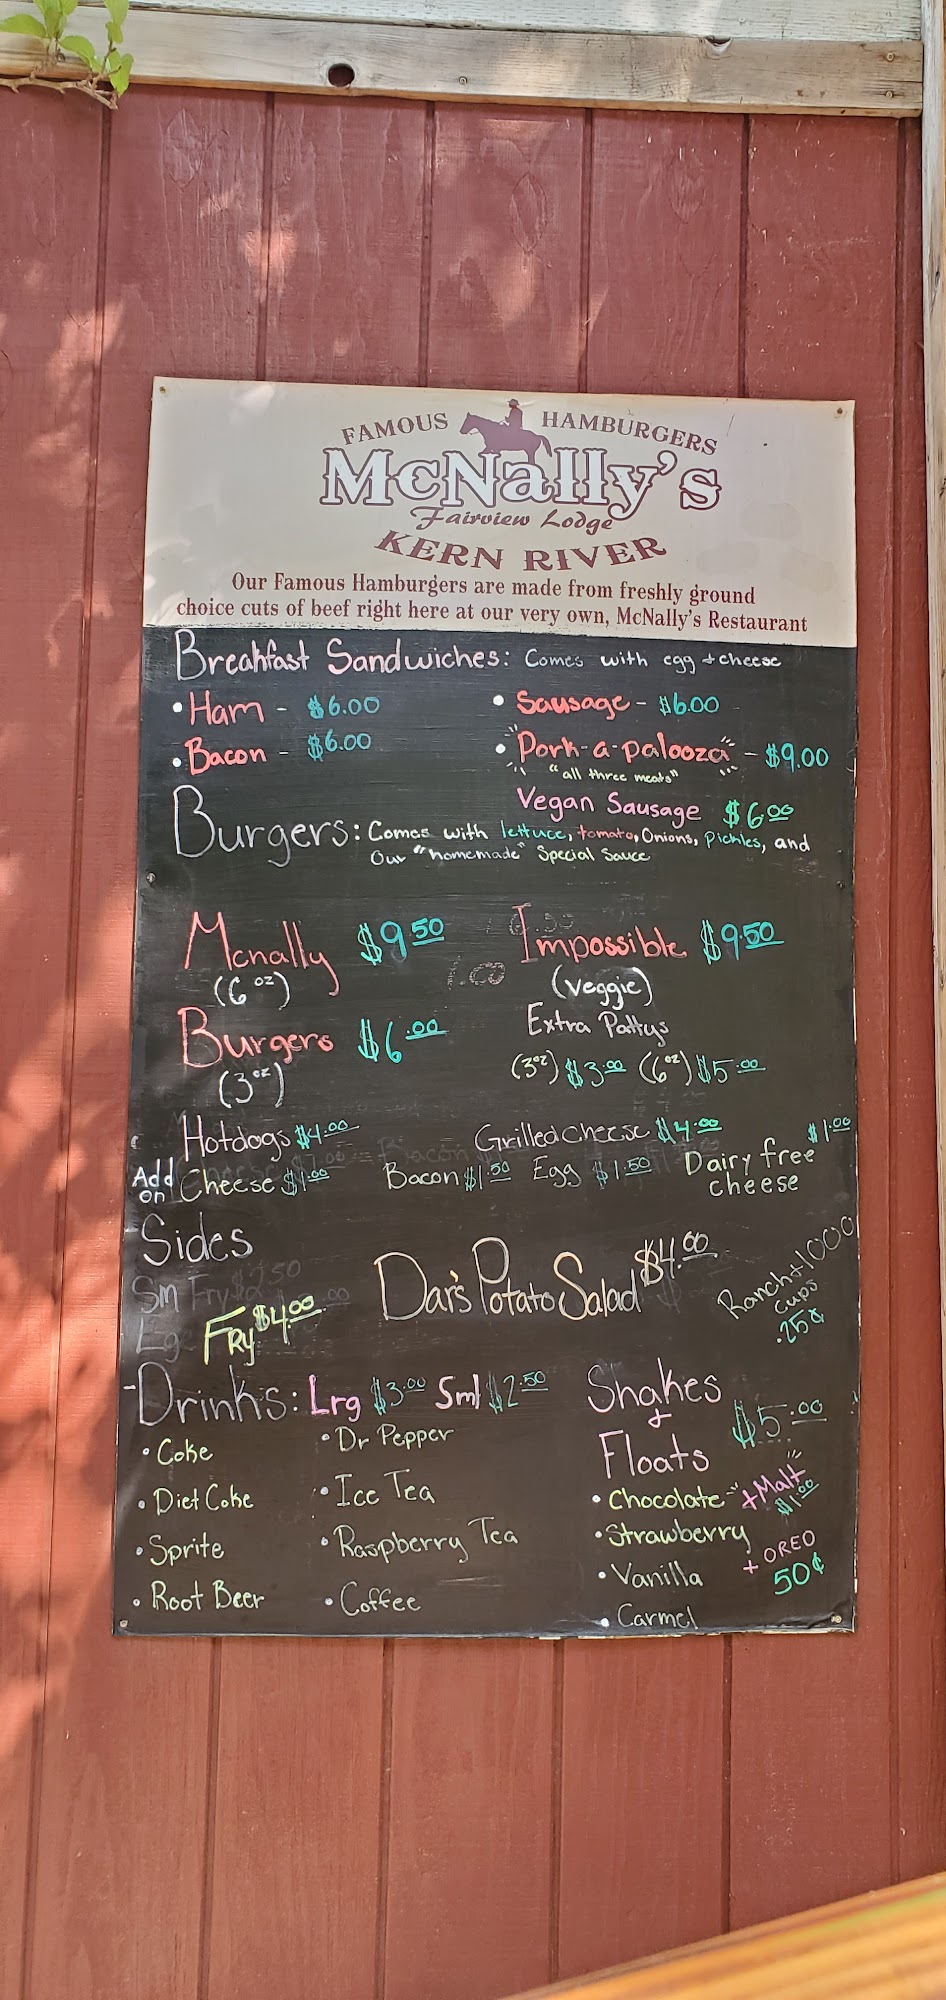 FAMOUS HAMBURGERS
McNally's
Fairview Lodge
KERN RIVER
Our Famous Hamburgers are made from freshly ground
choice cuts of beef right here at our very own, McNally's Restaurant
Breakfast Sandwiches: Comes with egg + cheese
• Ham - $6.00
• Sausage - $6.00
• Bacon - $6.00
• "Pork-a-palooza" - $9.00
"all three meats"
Vegan Sausage $6.00
Burgers: Comes with lettuce, tomato, Onions, Pickles, and
Our "homemade" Special Sauce
Mcnally $9.50
(6 oz)
Impossible $9.50
(veggie)
Burgers $6.00
(3 oz)
Extra Pattys
(3oz) $3.00 (6oz) $5.00
Hotdogs $4.00
Grilled cheese $4.00
Add on Cheese $1.00 Bacon $1.50 Egg $1.50
Dairy free cheese $1.00
Sides
Sm Fry $2.50
Lge
Fry $4.00
Dar's Potato Salad $4.00
Ranch + 1000
Cups
.25¢
-Drinks: Lrg $3.00 Sml $2.50
• Coke
• Diet Coke
• Sprite
• Root Beer
• Dr Pepper
• Ice Tea
• Raspberry Tea
• Coffee
Shakes
+
Floats
$5.00
• Chocolate
• Strawberry
• Vanilla
• Carmel
"+Malt"
$1.00
+ OREO
50¢